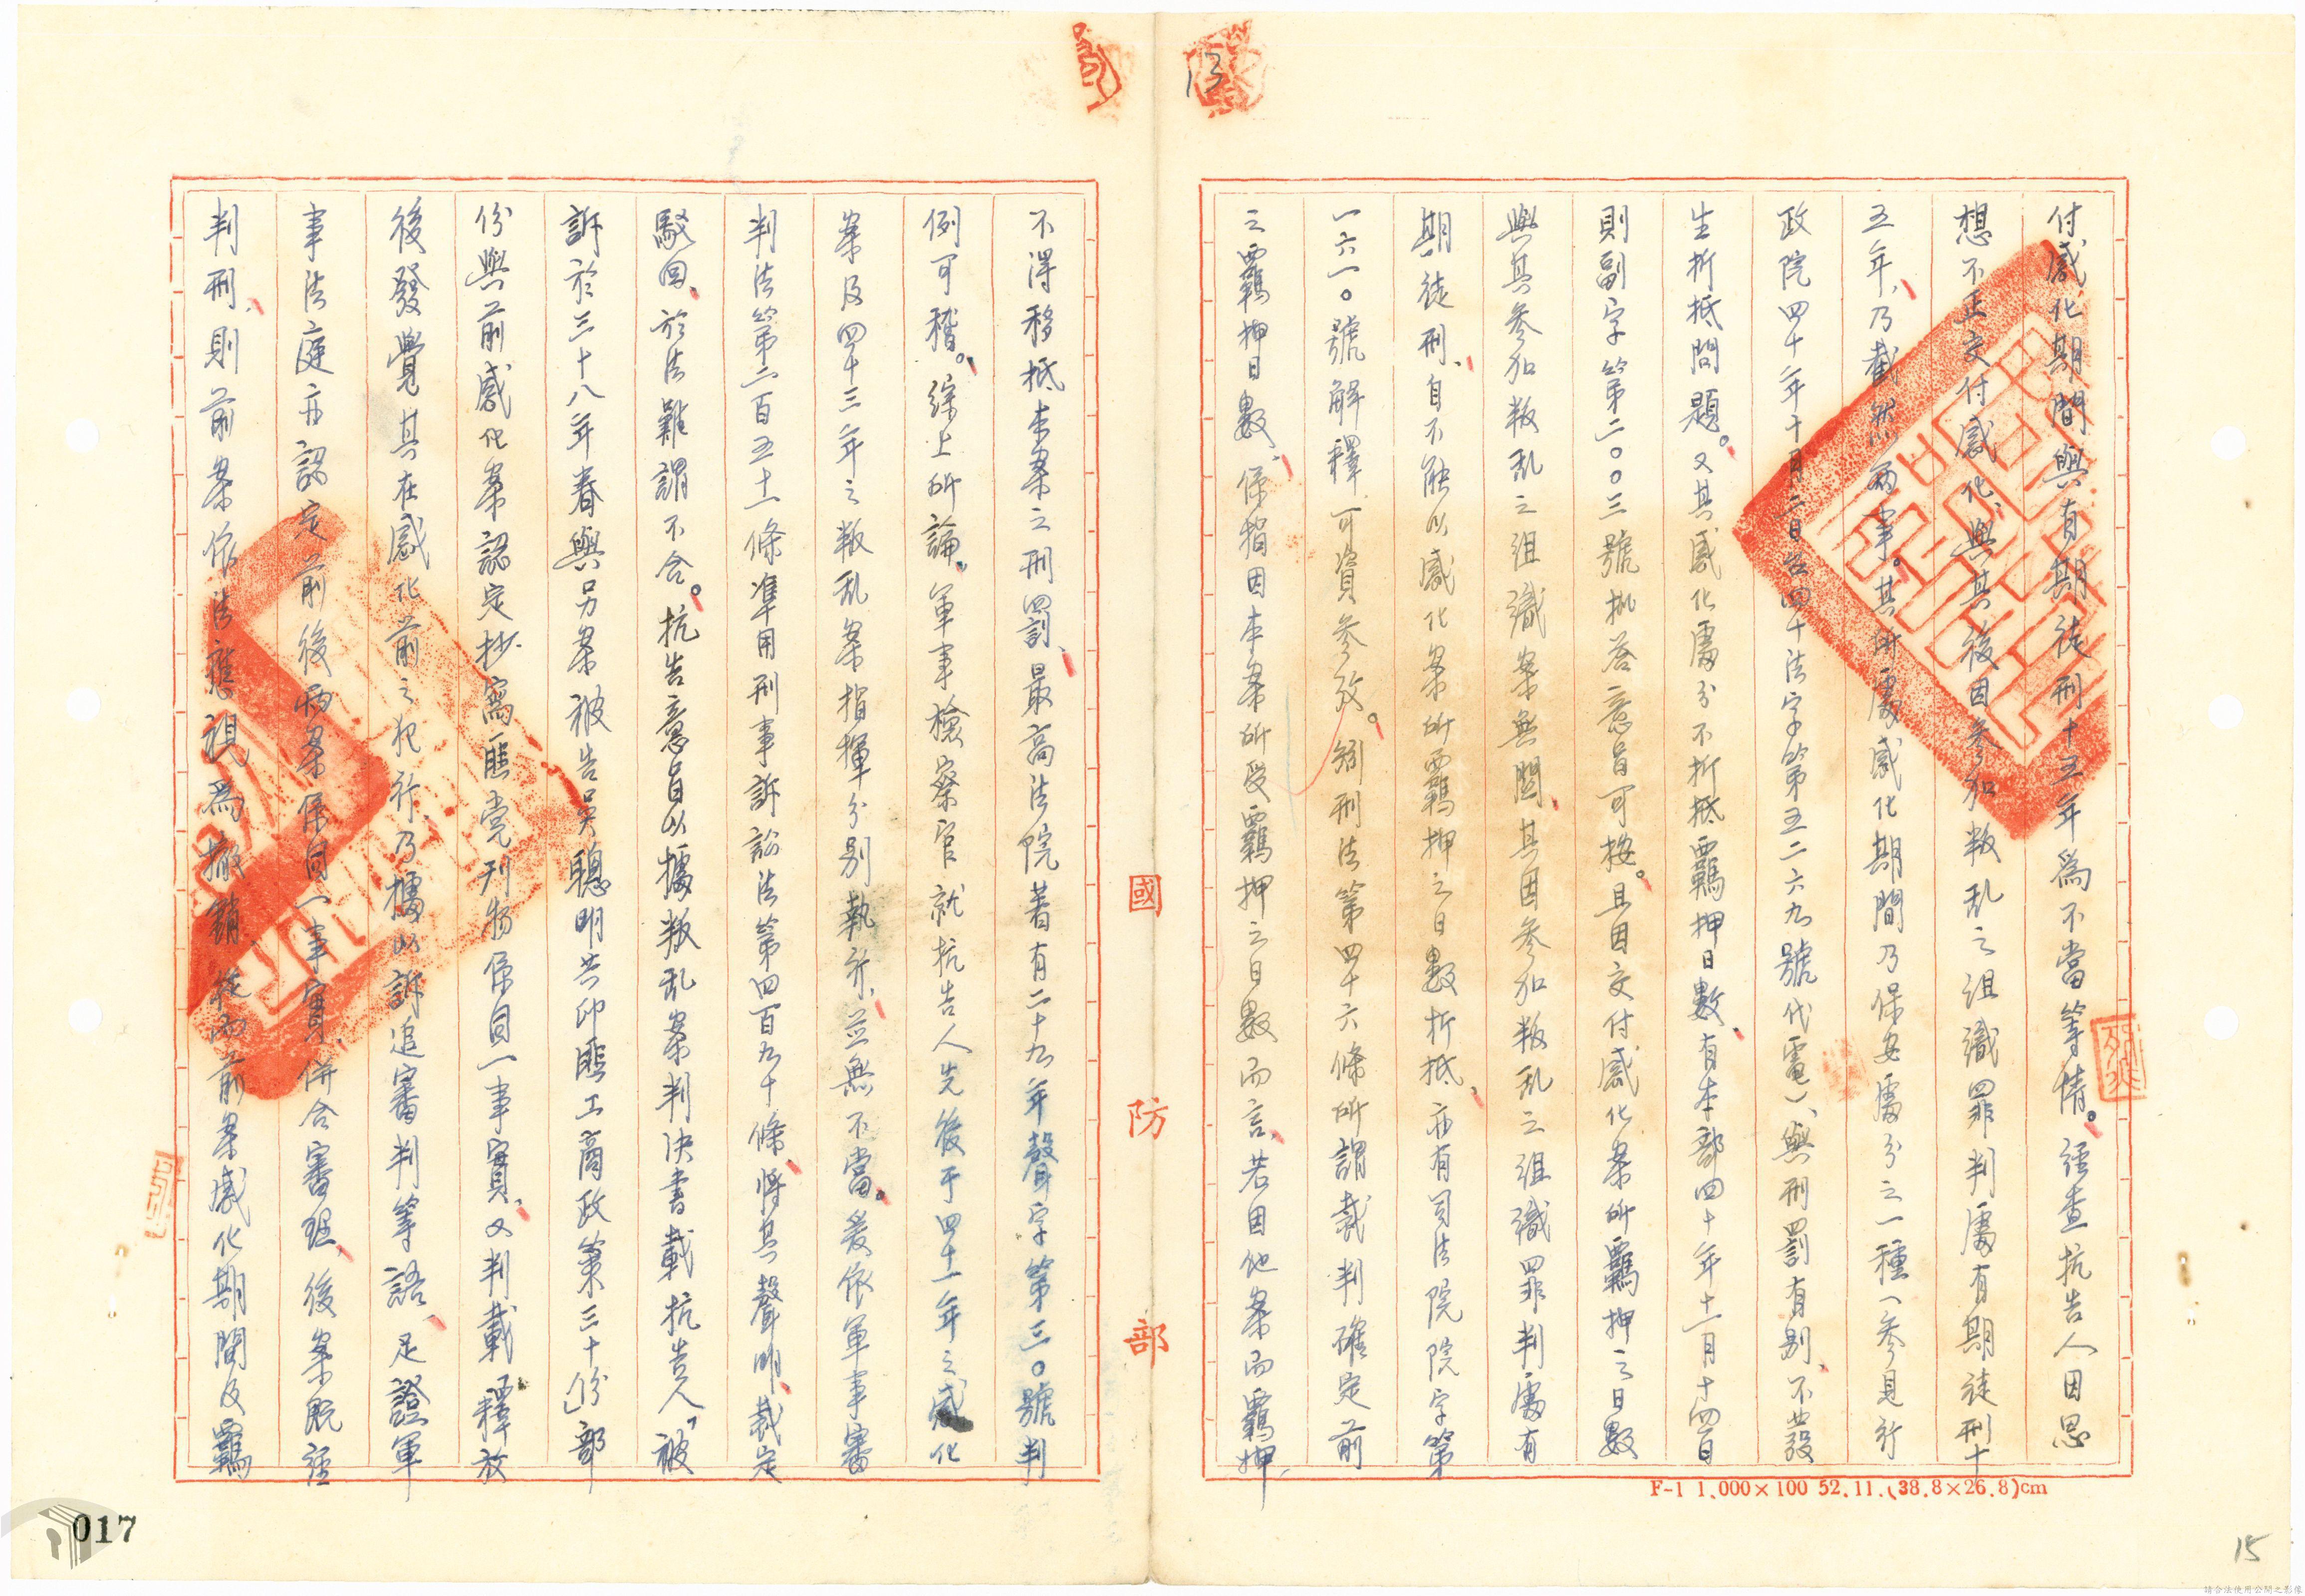 13
付感化期間與有期徒刑十五年為不當等情。經查抗告人因思
想不正交付感化、與其後因參加叛乱之組織罪判處有期徒刑十
五年、乃截然兩事。其所處感化期間乃保安處分之一種（參見行
政院四十二年十月二日台四十法字第五二六九號代電）、與刑罰有別、不發
生折抵問題。又其感化處分不折抵羈押日數、有本部四十年十二月十四日
則副字第二〇〇三號批答意旨可按。且因交付感化案所羈押之日數
與其參加叛乱之組織案無關、其因參加叛乱之組織罪判處有
期徒刑、自不能以感化案所羈押之日數折抵、亦有司法院院字第
一六一〇號解釋可資參攷。 刑法第四十六條所謂裁判確定前
之羈押日數、係指因本案所受羈押之日數而言、若因他案而羈押、
國防部
不得移抵本案之刑罰、最高法院著有二十九年聲字第三〇號判
例可稽。綜上所論、軍事檢察官就抗告人先後于四十一年之感化
案及四十三年之叛乱案指揮分別執行、並無不當。爰依軍事審
判法第二百五十一條準用刑事訴訟法第四百九十條、將其聲明、裁定
駁回、於法難謂不合。抗告意旨以據叛乱案判決書載抗告人「被
訴於三十八年春與另案被告吳聰明共印匪工商政策三十份」部
份與前感化案認定抄寫匪党刊物係同一事實、又判載「釋放
後發覺其在感化前之犯行、乃據以訴追審判等語、足證軍
事法庭亦認定前後兩案係同一事實、併合審理、後案既經
判刑、則前案依法應視為撤銷、從而前案感化期間及羈
F-1 1,000×100 52.11.(38.8×26.8)cm
017
15
請合法使用公開之影像